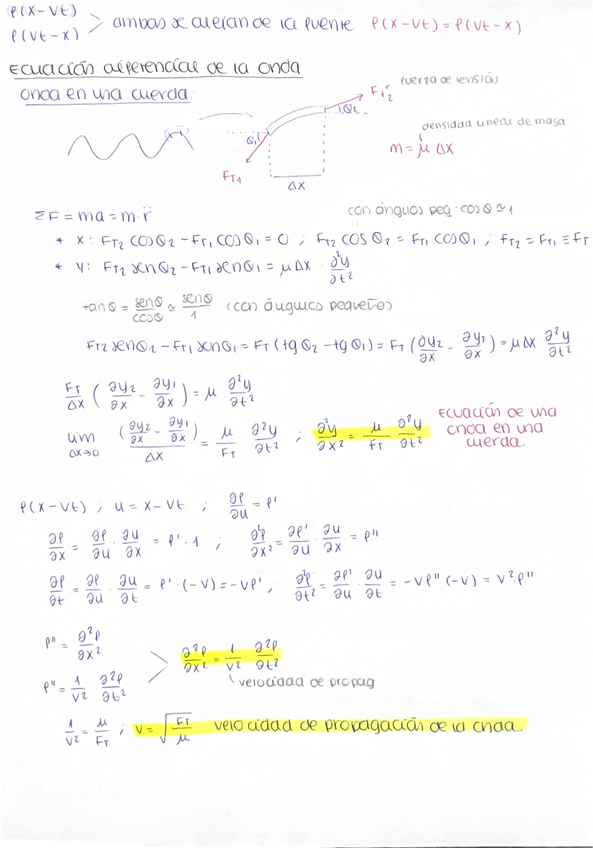 f(x-vt)
f(vt-x) > ambas se alejan de la fuente f(x-vt) = f(vt-x)
Ecuación diferencial de la onda
onda en una cuerda
F_T2 fuerza de tensión
θ1 θ2
F_T1
Δx
densidad lineal de masa
m = μ Δx
ΣF = ma = m·r̈ con ángulos peq. cos θ ≃ 1
* x: F_T2 cos θ2 - F_T1 cos θ1 = 0 ; F_T2 cos θ2 = F_T1 cos θ1 ; F_T2 = F_T1 ≡ F_T
* y: F_T2 sen θ2 - F_T1 sen θ1 = μ Δx · ∂²y/∂t²
tan θ = sen θ/cos θ ≃ sen θ/1 (con ángulos pequeños)
F_T2 sen θ2 - F_T1 sen θ1 = F_T (tg θ2 - tg θ1) = F_T (∂y2/∂x - ∂y1/∂x) = μ Δx ∂²y/∂t²
F_T/Δx (∂y2/∂x - ∂y1/∂x) = μ ∂²y/∂t²
lim Δx→0 (∂y2/∂x - ∂y1/∂x)/Δx = μ/F_T ∂²y/∂t² ; ∂²y/∂x² = μ/F_T ∂²y/∂t²
Ecuación de una
onda en una
cuerda.
f(x-vt) ; u = x-vt ; ∂f/∂u = f'
∂f/∂x = ∂f/∂u · ∂u/∂x = f' · 1 ; ∂²f/∂x² = ∂f'/∂u · ∂u/∂x = f''
∂f/∂t = ∂f/∂u · ∂u/∂t = f' · (-v) = -vf' ; ∂²f/∂t² = ∂f'/∂u · ∂u/∂t = -vf'' (-v) = v² f''
f'' = ∂²f/∂x²
f'' = 1/v² ∂²f/∂t² > ∂²f/∂x² = 1/v² ∂²f/∂t²
velocidad de propag
1/v² = μ/F_T ; v = √(F_T/μ) velocidad de propagación de la onda.